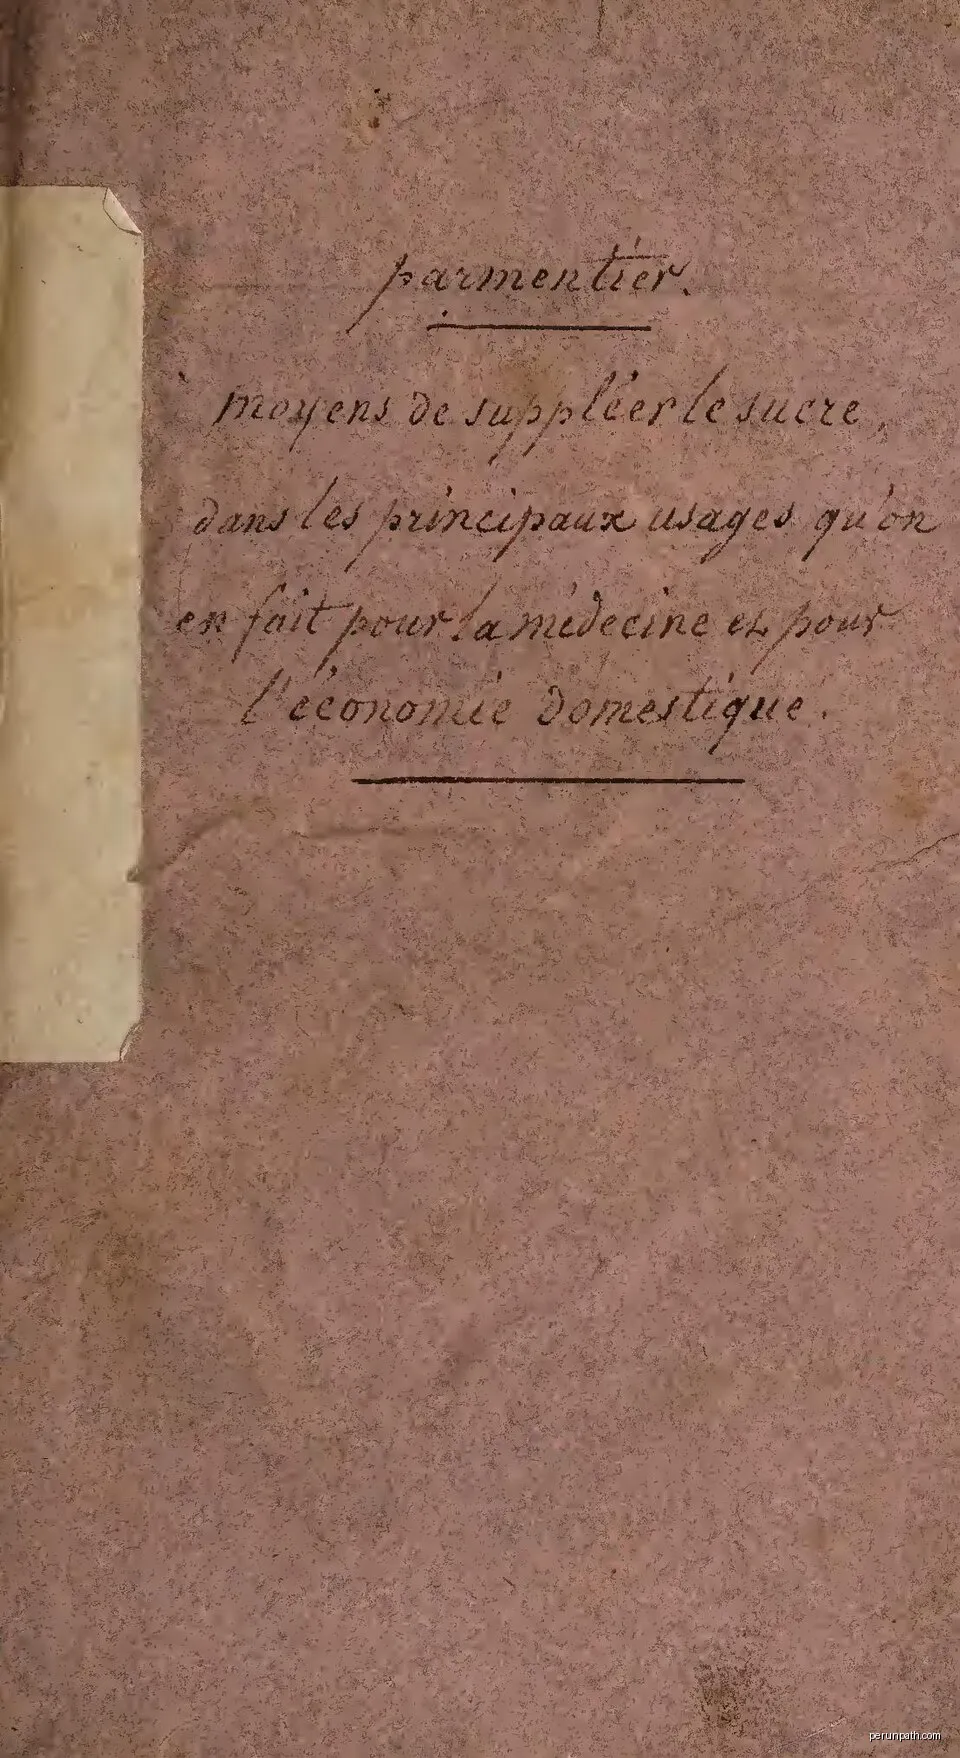 parmentier.
moyens de suppléer le sucre,
dans les principaux usages qu'on
en fait pour la médecine et pour
l'économie domestique.
perunpath.com